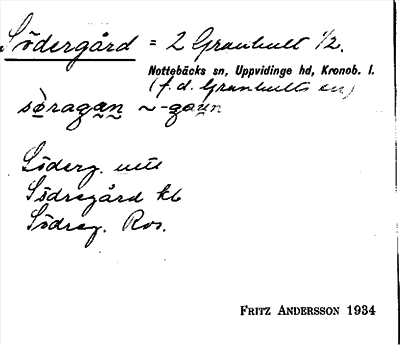 Södergård = 2 Granhult 1/2.
Nottebäcks sn, Uppvidinge hd, Kronob. l.
(f.d. Granhults sn)
søragan ~-gaun
Söderg. utt
Södregård kb
Södreg. Ros.
FRITZ ANDERSSON 1934